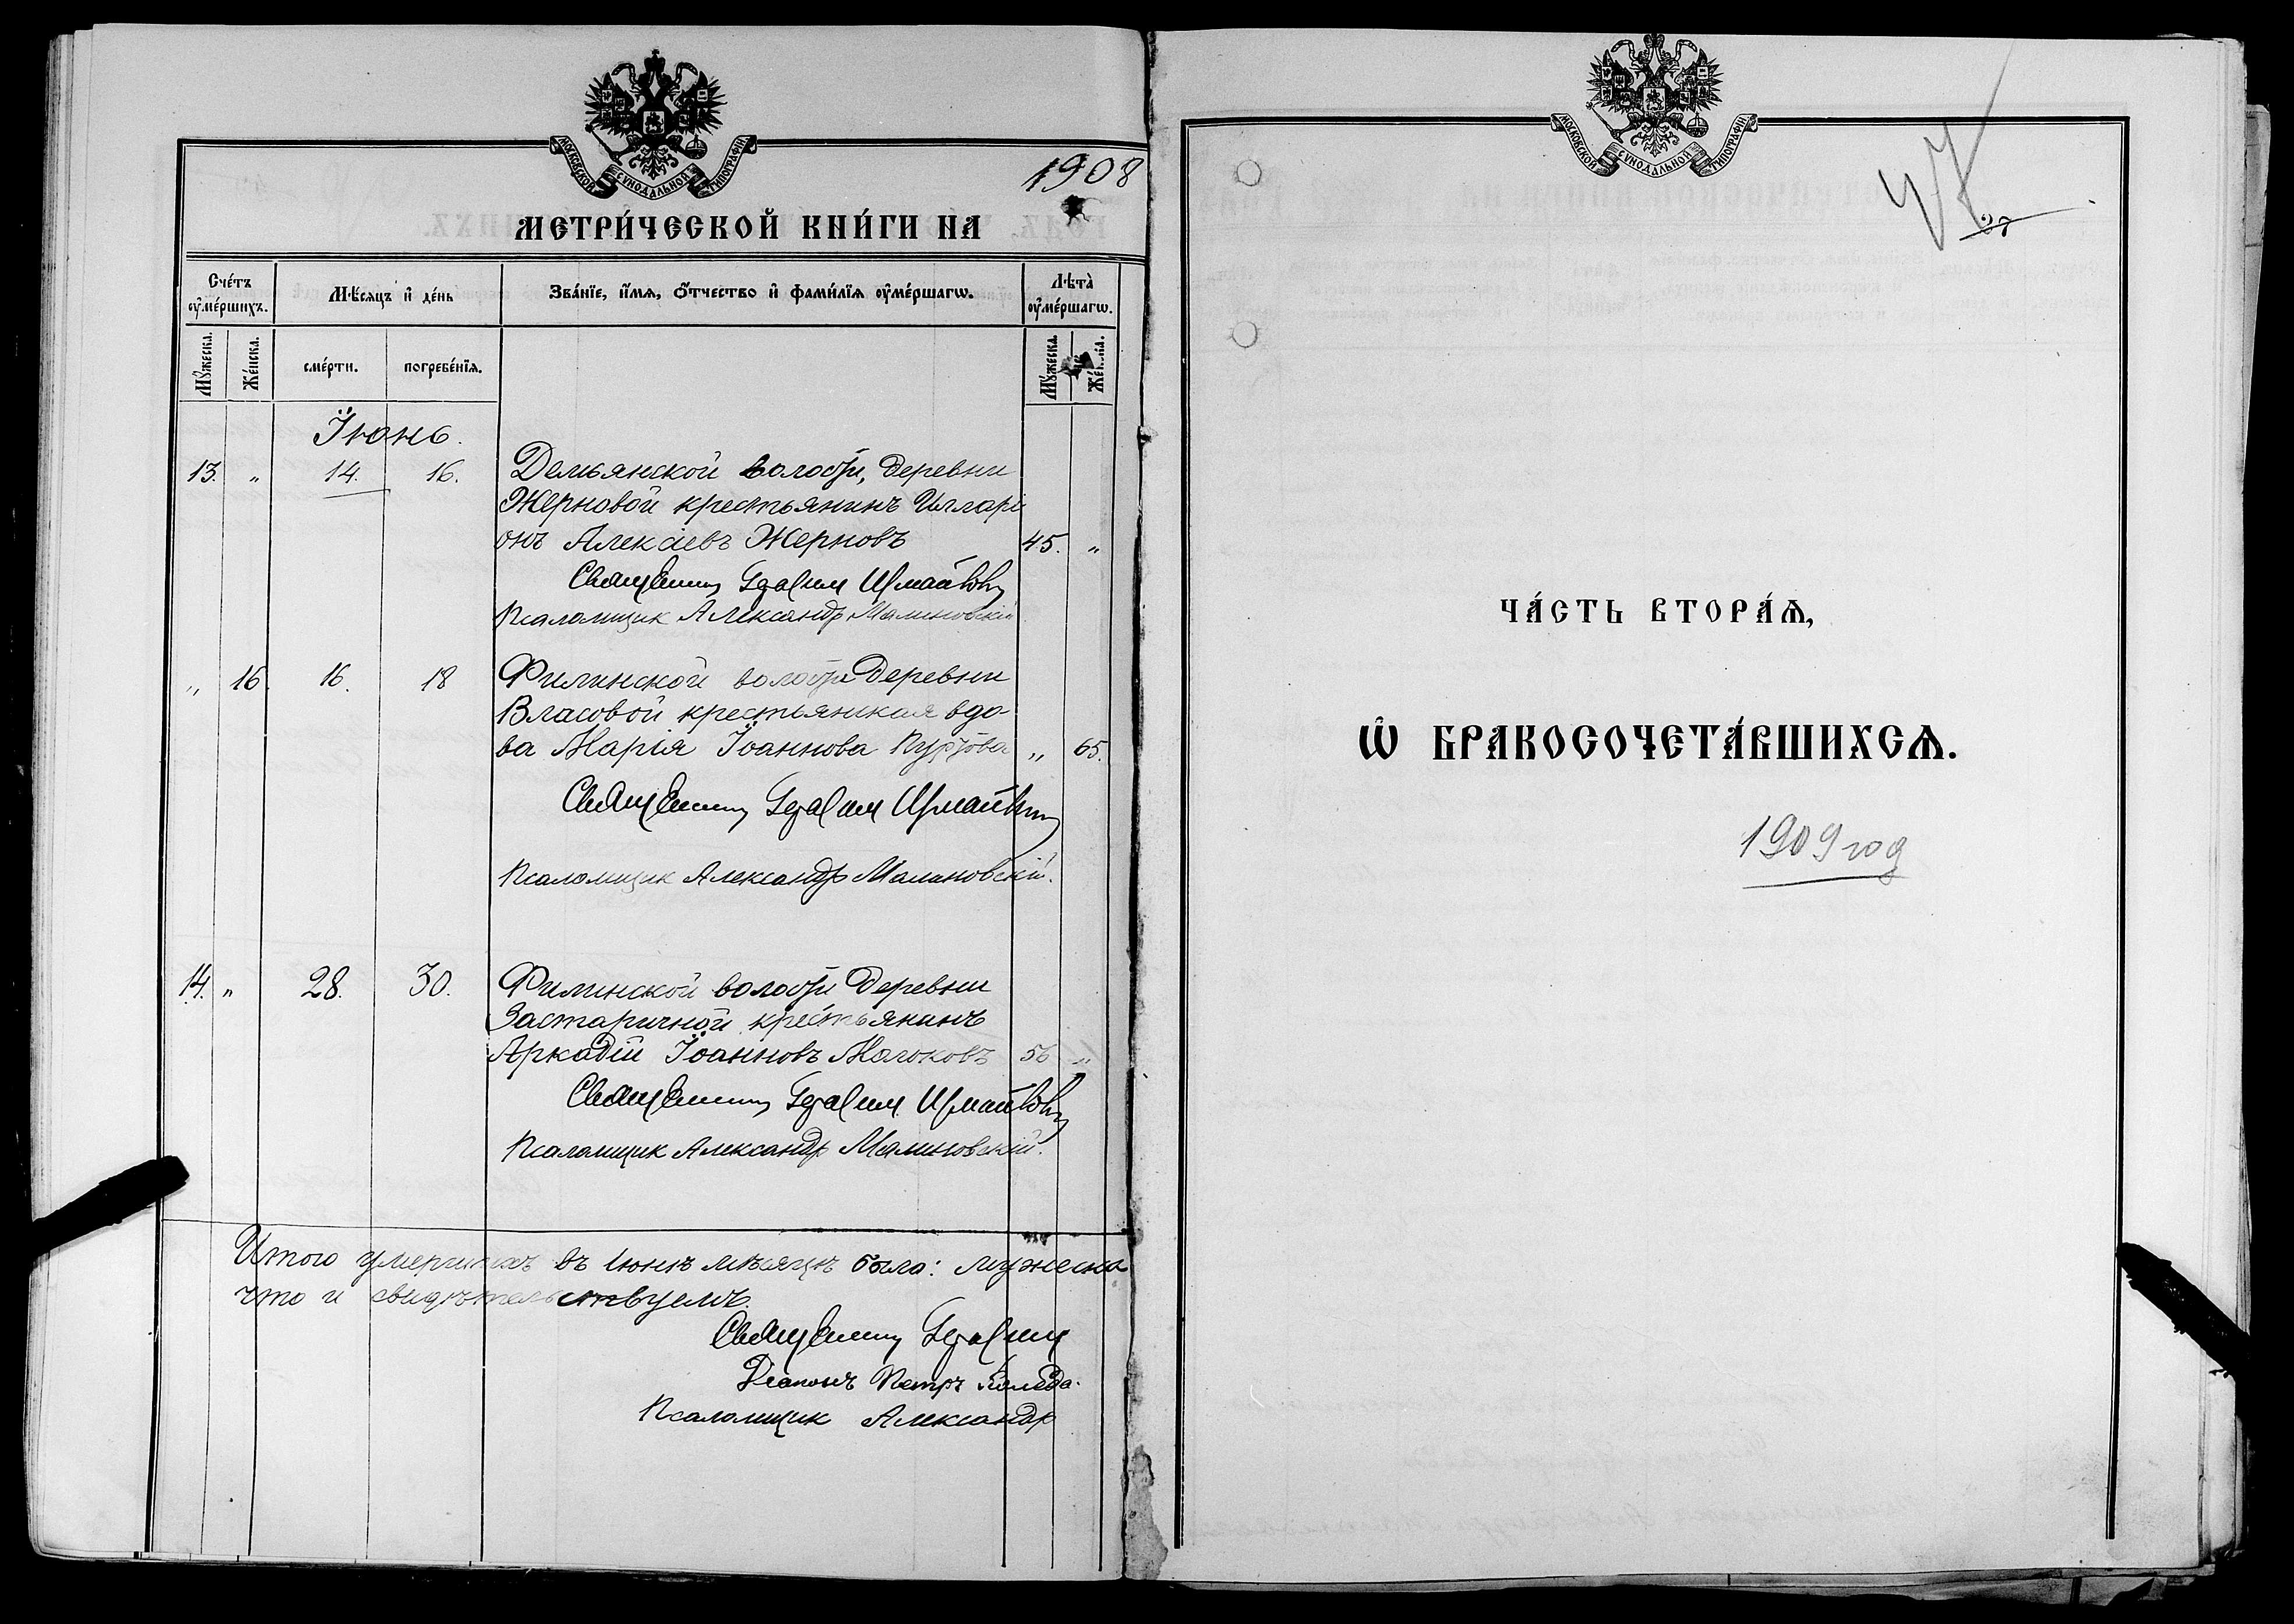 МОСКОВСКОЙ СѴНОДАЛЬНОЙ ТИПОГРАФІИ.
1908
МЕТРИ́ЧЕСКОЙ КНИ́ГИ НА
Сче́тъ ᲂу҆ме́ршихъ.
Мѣ́сяцъ и҆ де́нь
Зва́нїе, и҆́мѧ, ѻ҆́тчество и҆ фами́лїѧ ᲂу҆ме́ршагѡ.
Лѣта̀ ᲂу҆ме́ршагѡ.
Мꙋ́жеска.
Же́нска.
сме́рти.
погребе́нїѧ.
Мꙋ́жеска.
Іюнь.
13. „ 14. 16. Демьянской волости, деревни
Жерновой крестьянинъ Иллари
онъ Алексіевъ Жерновъ 45. „
Священникъ
Псаломщик Александръ Малиновскій
„ 16. 16. 18 Филинской волости деревни
Власовой крестьянская вдо-
ва Марія Іоаннова „ 65.
Священникъ
Псаломщик Александръ Малиновскій.
14. „ 28. 30. Филинской волости деревни
Застаричной крестьянинъ
Аркадій Іоанновъ Молоковъ 56 „
Священникъ
Псаломщик Александръ Малиновскій.
Итого умершихъ въ Іюнѣ мѣсяцѣ было: мужеска
что и свидѣтельствуемъ.
Священникъ
Діаконъ Петръ Коляда.
Псаломщик Александръ
МОСКОВСКОЙ СѴНОДАЛЬНОЙ ТИПОГРАФІИ.
27
ЧА́СТЬ ВТОРА́Ѧ,
Ѡ҆ БРАКОСОЧЕТА́ВШИХСѦ.
1909 год